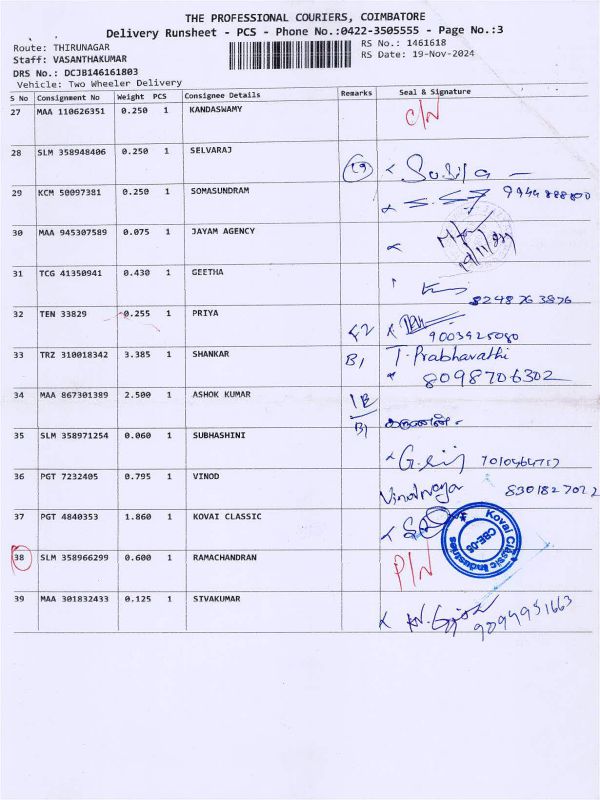 THE PROFESSIONAL COURIERS, COIMBATORE
Delivery Runsheet - PCS - Phone No.:0422-3505555 - Page No.:3
Route: THIRUNAGAR
RS No.: 1461618
Staff: VASANTHAKUMAR
RS Date: 19-Nov-2024
DRS No.: DCJB146161803
Vehicle: Two Wheeler Delivery
S No Consignment No Weight PCS Consignee Details Remarks Seal & Signature
27 MAA 110626351 0.250 1 KANDASWAMY C/N
28 SLM 358948406 0.250 1 SELVARAJ
29 KCM 50097381 0.250 1 SOMASUNDRAM
30 MAA 945307589 0.075 1 JAYAM AGENCY
31 TCG 41350941 0.430 1 GEETHA
8248763876
32 TEN 33829 0.255 1 PRIYA F2
9003925080
33 TRZ 310018342 3.385 1 SHANKAR B1 T. Prabhavathi
8098706302
34 MAA 867301389 2.500 1 ASHOK KUMAR
B1
35 SLM 358971254 0.060 1 SUBHASHINI
36 PGT 7232405 0.795 1 VINOD
8301827022
37 PGT 4840353 1.860 1 KOVAI CLASSIC
Kovai Classic Industries
CBE-06
38 SLM 358966299 0.600 1 RAMACHANDRAN P/N
39 MAA 301832433 0.125 1 SIVAKUMAR